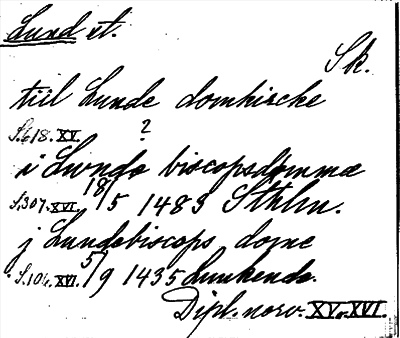 Lund st.
Sk.
till Lunde domkircke
S. 618. XV. ?
i Lwndo biscopsdømmæ
S. 307. XVI. 18/5 1483 Sthlm.
j Lundebiscops dome
S. 104. XVI. 5/9 1435 Lunkende.
Dipl. norv. XV o. XVI.